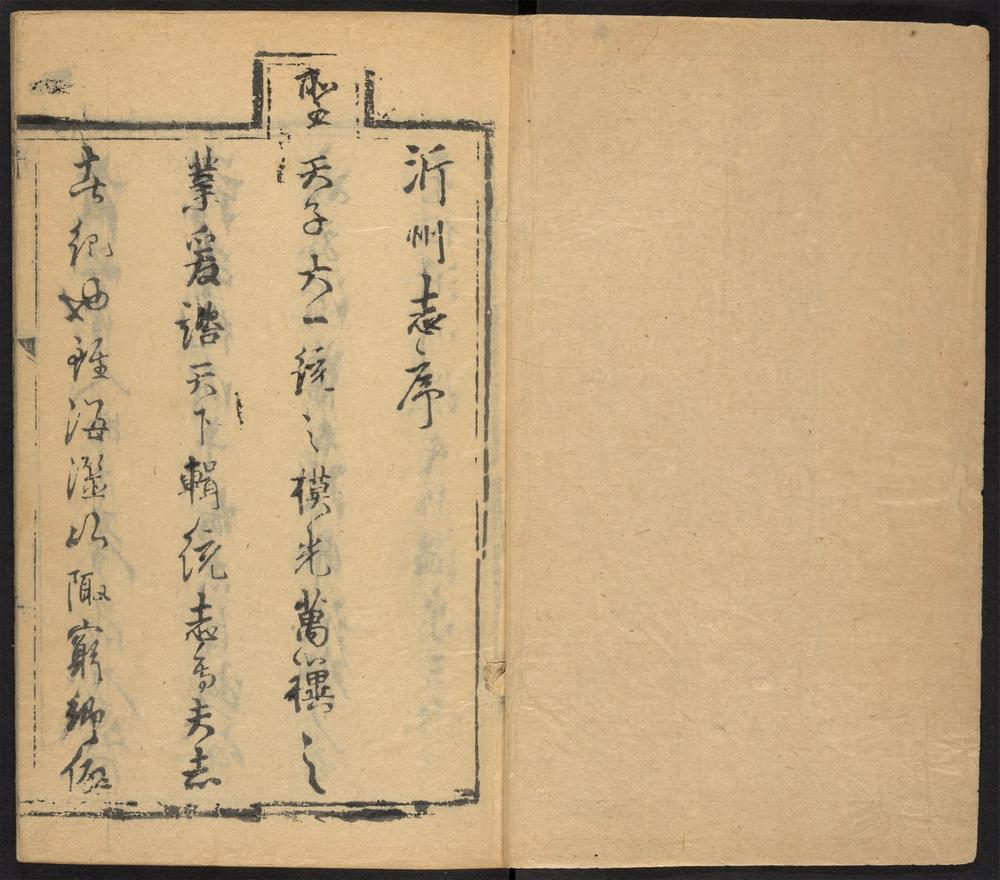 沂州志序
聖天子大一統之模光萬禩之
業爰諮天下輯統志焉夫志
者紀也雖海澨以陬窮鄉僻